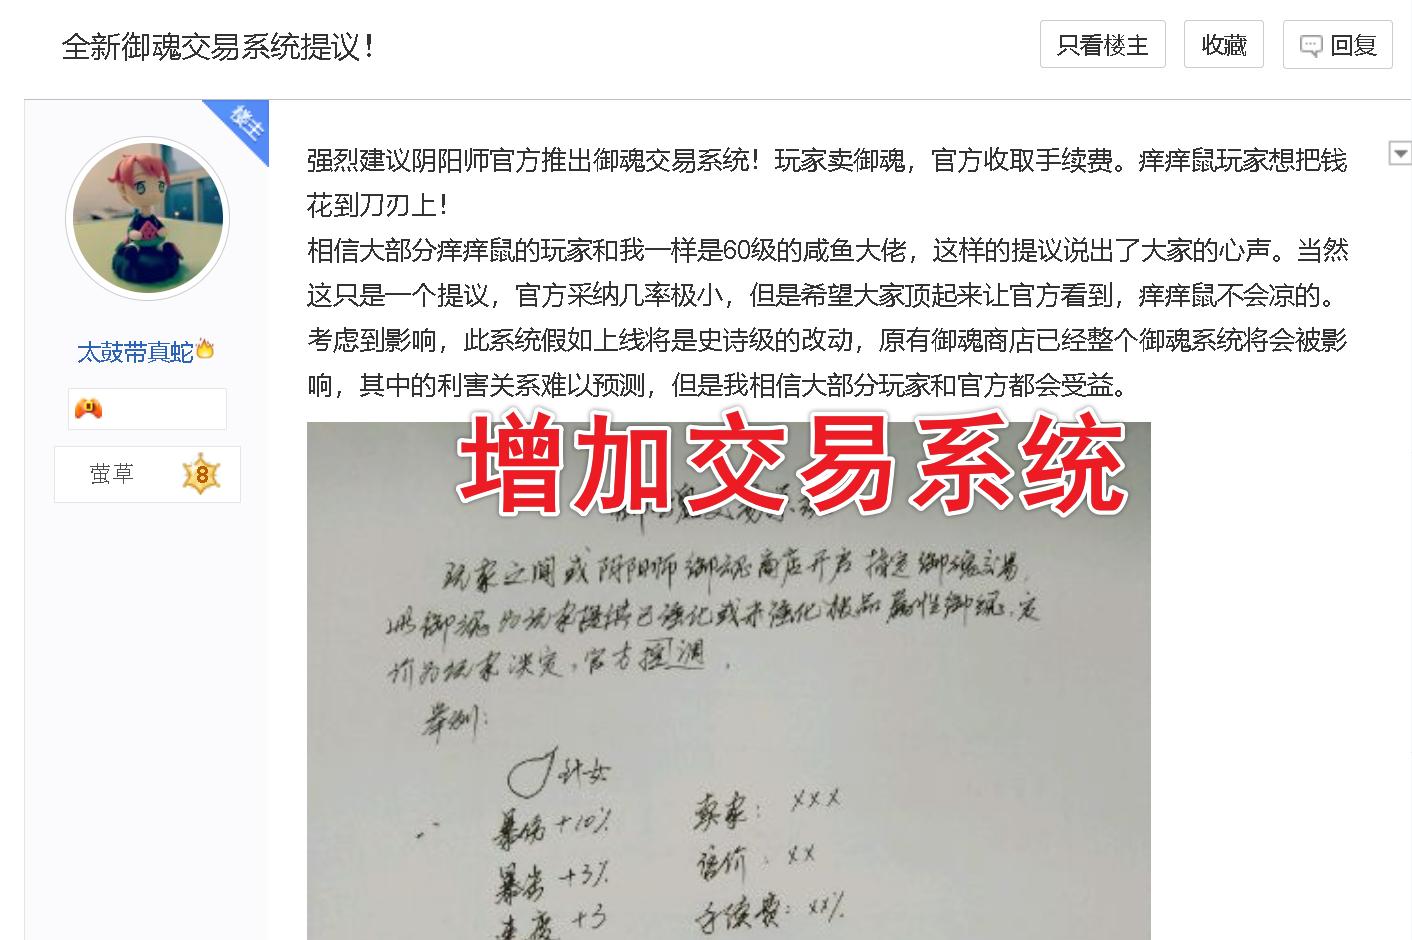 全新御魂交易系统提议！
只看楼主
收藏
回复
楼主
强烈建议阴阳师官方推出御魂交易系统！玩家卖御魂，官方收取手续费。痒痒鼠玩家想把钱
花到刀刃上！
相信大部分痒痒鼠的玩家和我一样是60级的咸鱼大佬，这样的提议说出了大家的心声。当然
这只是一个提议，官方采纳几率极小，但是希望大家顶起来让官方看到，痒痒鼠不会凉的。
考虑到影响，此系统假如上线将是史诗级的改动，原有御魂商店已经整个御魂系统将会被影
响，其中的利害关系难以预测，但是我相信大部分玩家和官方都会受益。
太鼓带真蛇
萤草
8
增加交易系统
玩家之间或阴阳师御魂商店开启指定御魂交易，
御魂为玩家提供已强化或未强化极品属性御魂，定
价为玩家决定，官方控调，
举例：
针女
暴伤+10%
卖家：xxx
暴击+3%
售价：xx
速度+3
手续费：xx%